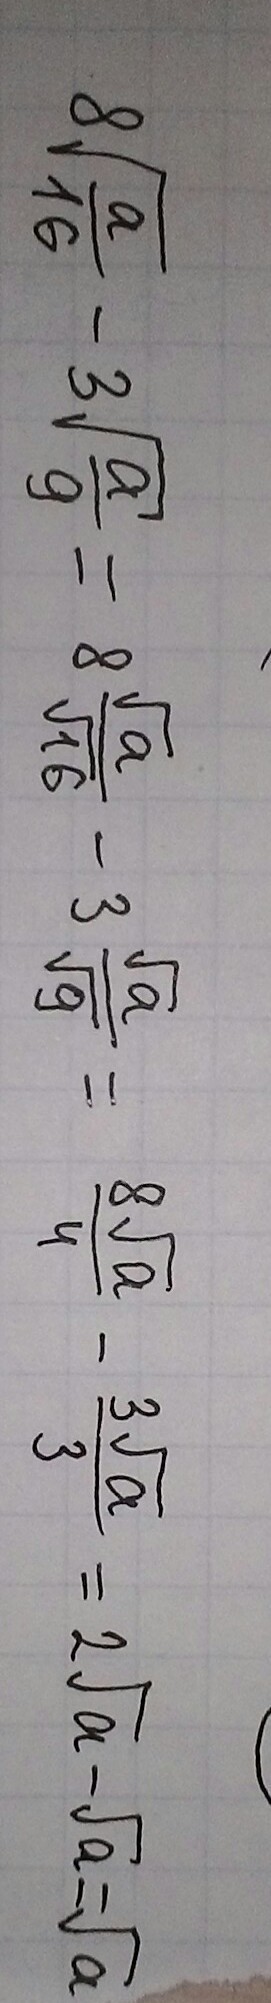 8√(a/16) − 3√(a/9) = 8 √a/√16 − 3 √a/√9 = 8√a/4 − 3√a/3 = 2√a − √a = √a